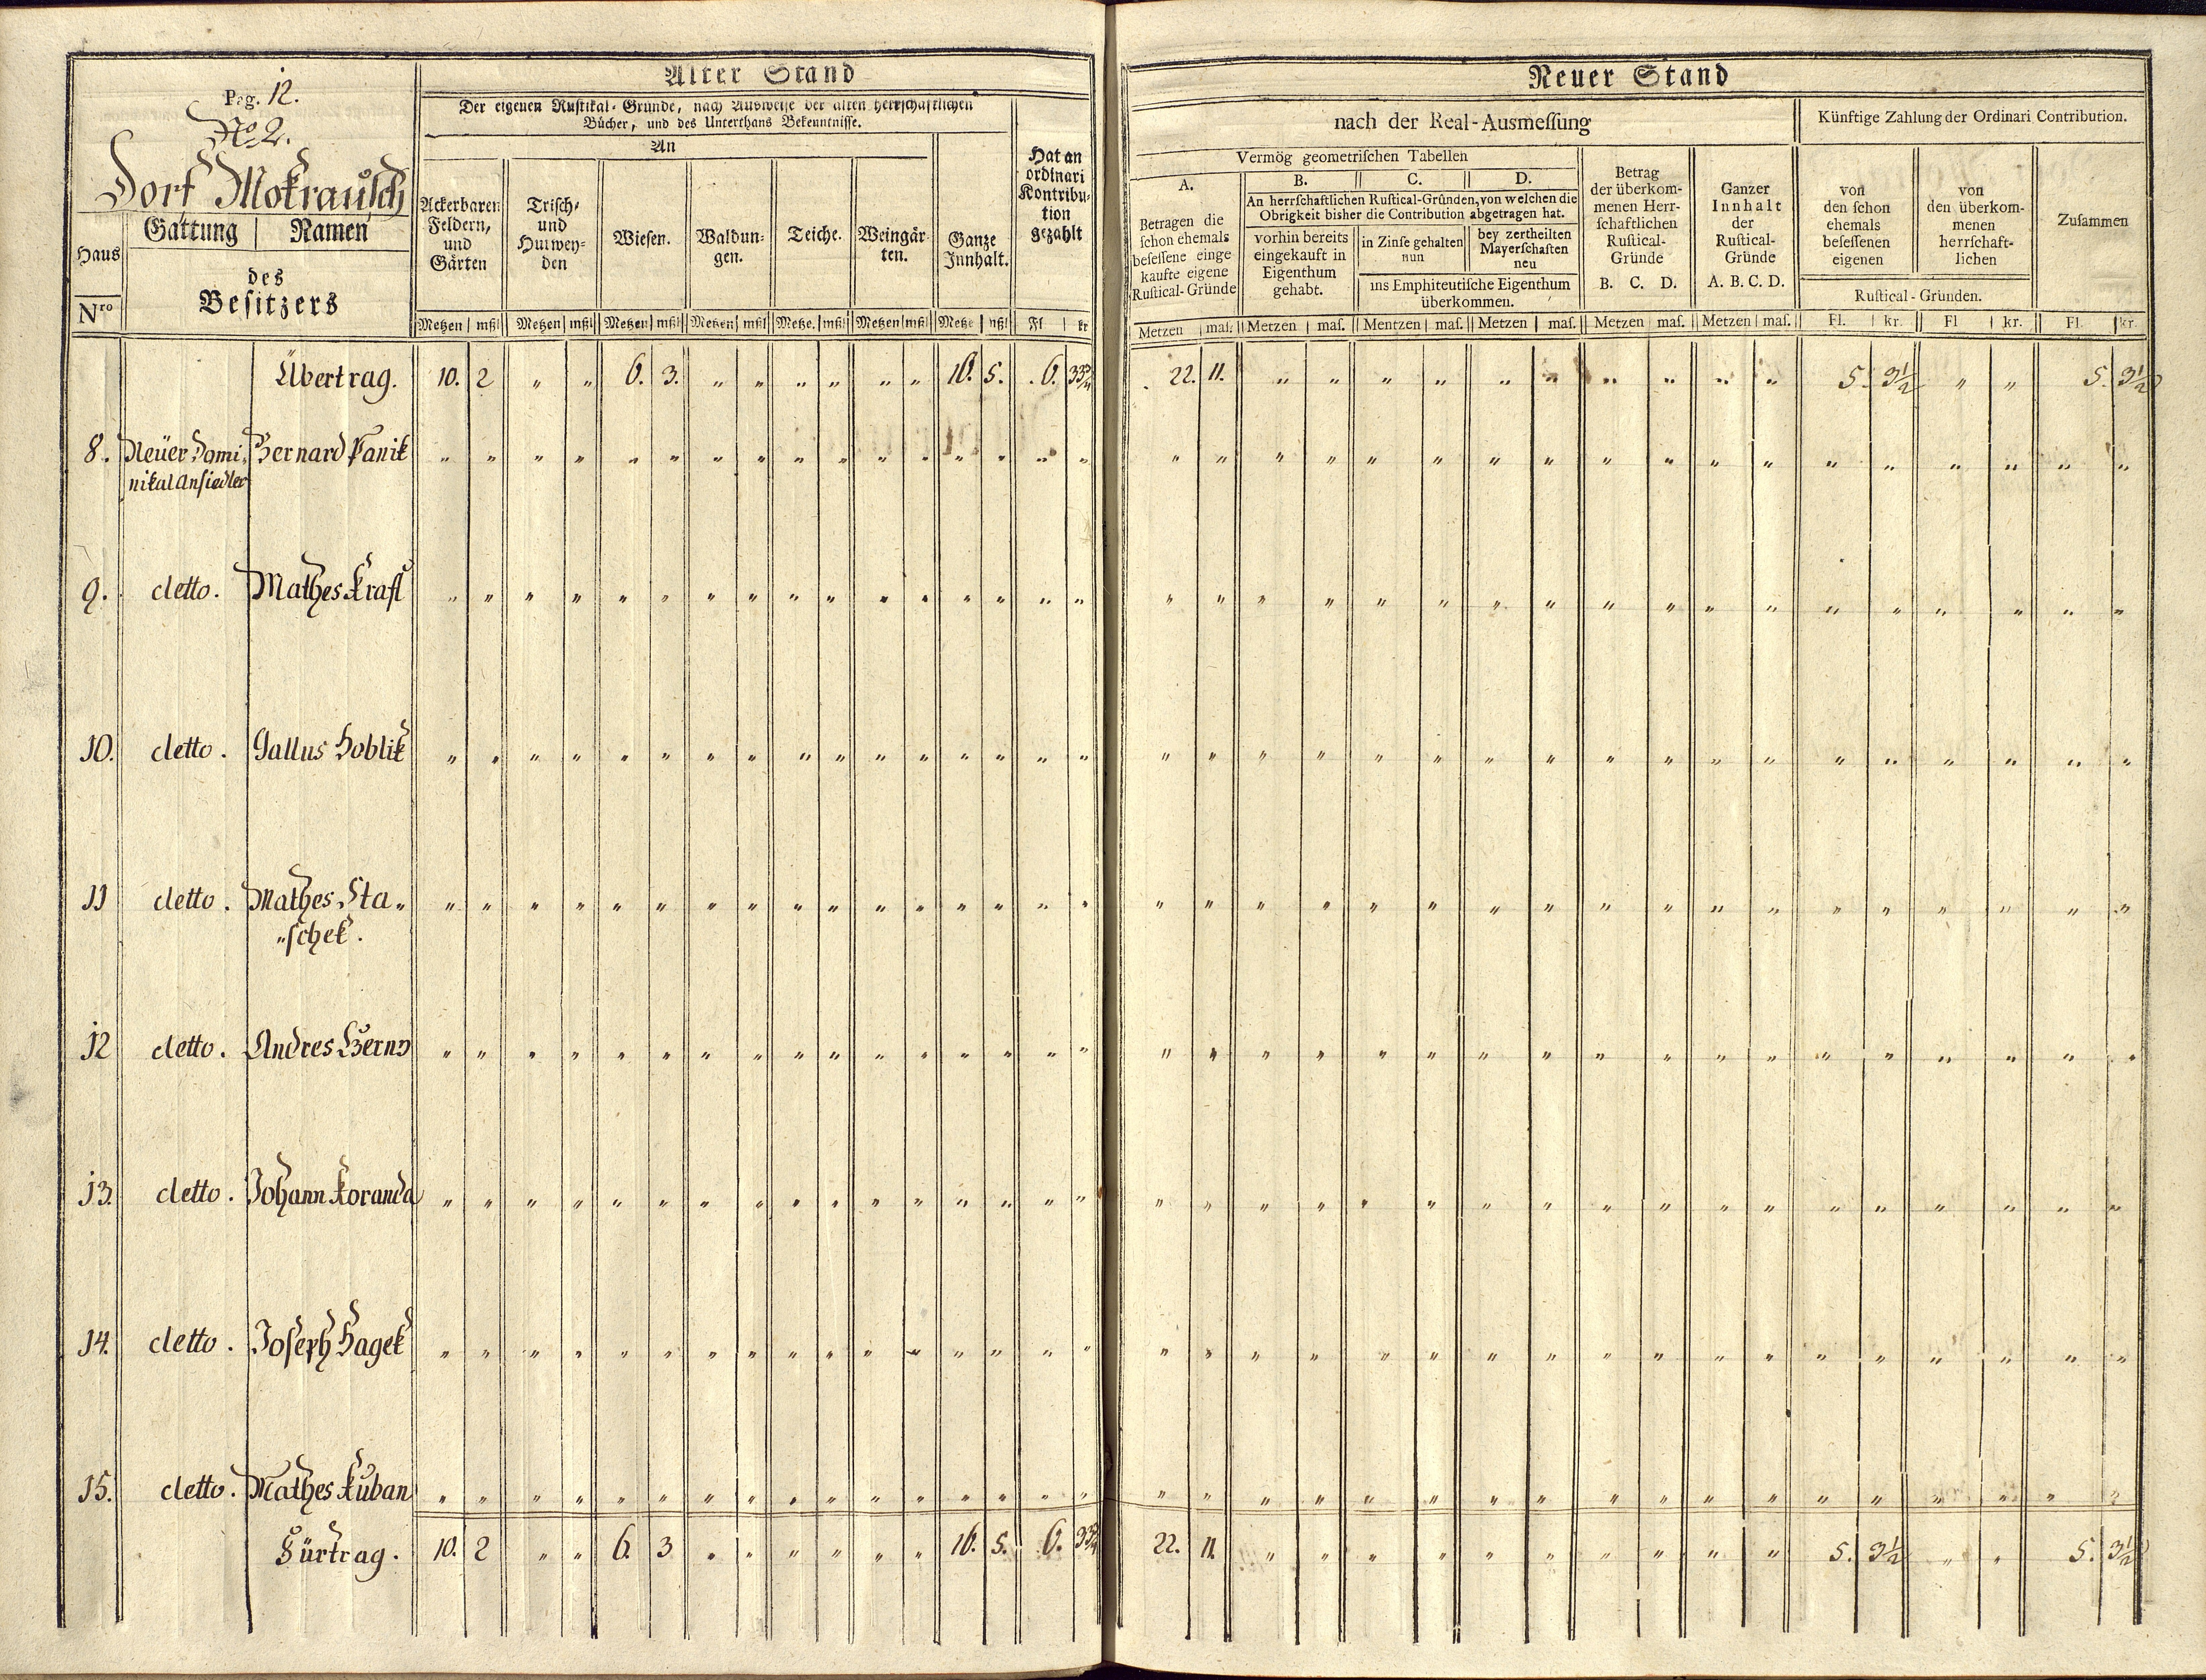 Alter Stand
Pag. 12.
No 2.
Dorf Mokrausch
Der eigenen Rustikal-Gründe, nach Ausweise der alten herrschaftlichen
Bücher, und des Unterthans Bekenntnisse.
An
Haus
Nro
Gattung | Namen
des
Besitzers
Ackerbaren
Feldern,
und
Gärten
Trisch-
und
Hutwey-
den
Wiesen.
Waldun-
gen.
Teiche.
Weingär-
ten.
Ganze
Innhalt.
Hat an
ordinari
Kontribu-
tion
gezahlt
Metzen | mßl Metzen | mßl Metzen | mßl Metzen | mßl Metze. | mßl Metzen | mßl Metze | mßl Fl | kr
Übertrag. 10. 2 " " 6. 3. " " " " " " 16. 5. 6. 33 3/4
8. Neüer Domi- Bernard Panik " " " " " " " " " " " " " " " "
nikal Ansiedler
9. detto. Mathes Krafl " " " " " " " " " " " " " " " "
10. detto. Gallus Hoblik " " " " " " " " " " " " " " " "
11 detto. Mathes Sta" " " " " " " " " " " " " " " " "
"schek.
12 detto. Andres " " " " " " " " " " " " " " " "
13. detto. Johann Koranda " " " " " " " " " " " " " " " "
14. detto. Joseph Hagek " " " " " " " " " " " " " " " "
15. detto. Mathes Kuban " " " " " " " " " " " " " " " "
Fürtrag. 10. 2 " " 6. 3 " " " " " " 16. 5. 6. 33 3/4
Neuer Stand
nach der Real-Ausmeſſung
Künftige Zahlung der Ordinari Contribution.
Vermög geometriſchen Tabellen
A.
Betragen die
ſchon ehemals
beſeſſene einge
kaufte eigene
Ruſtical-Gründe
B. C. D.
An herrſchaftlichen Ruſtical-Gründen, von welchen die
Obrigkeit bisher die Contribution abgetragen hat.
vorhin bereits
eingekauft in
Eigenthum
gehabt.
in Zinſe gehalten
nun
bey zertheilten
Mayerſchaften
neu
ins Emphiteutiſche Eigenthum
überkommen.
Betrag
der überkom-
menen Herr-
ſchaftlichen
Ruſtical-
Gründe
B. C. D.
Ganzer
Innhalt
der
Ruſtical-
Gründe
A. B. C. D.
von
den ſchon
ehemals
beſeſſenen
eigenen
von
den überkom-
menen
herrſchaft-
lichen
Ruſtical-Gründen.
Zuſammen
Metzen | maſ. Metzen | maſ. Mentzen | maſ. Metzen | maſ. Metzen | maſ. Metzen | maſ. Fl. | kr. Fl | kr. Fl. | kr.
22. 11. " " " " " " " " " " 5. 3 1/2 " " 5. 3 1/2
" " " " " " " " " " " " " " " " " "
" " " " " " " " " " " " " " " " " "
" " " " " " " " " " " " " " " " " "
" " " " " " " " " " " " " " " " " "
" " " " " " " " " " " " " " " " " "
" " " " " " " " " " " " " " " " " "
" " " " " " " " " " " " " " " " " "
" " " " " " " " " " " " " " " " " "
22. 11. " " " " " " " " " " 5. 3 1/2 " " 5. 3 1/2